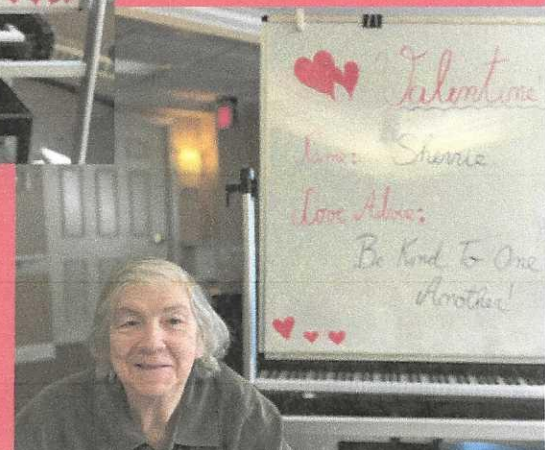 Valentine
Name: Sherrie
Love Advice:
Be Kind To One
Another!